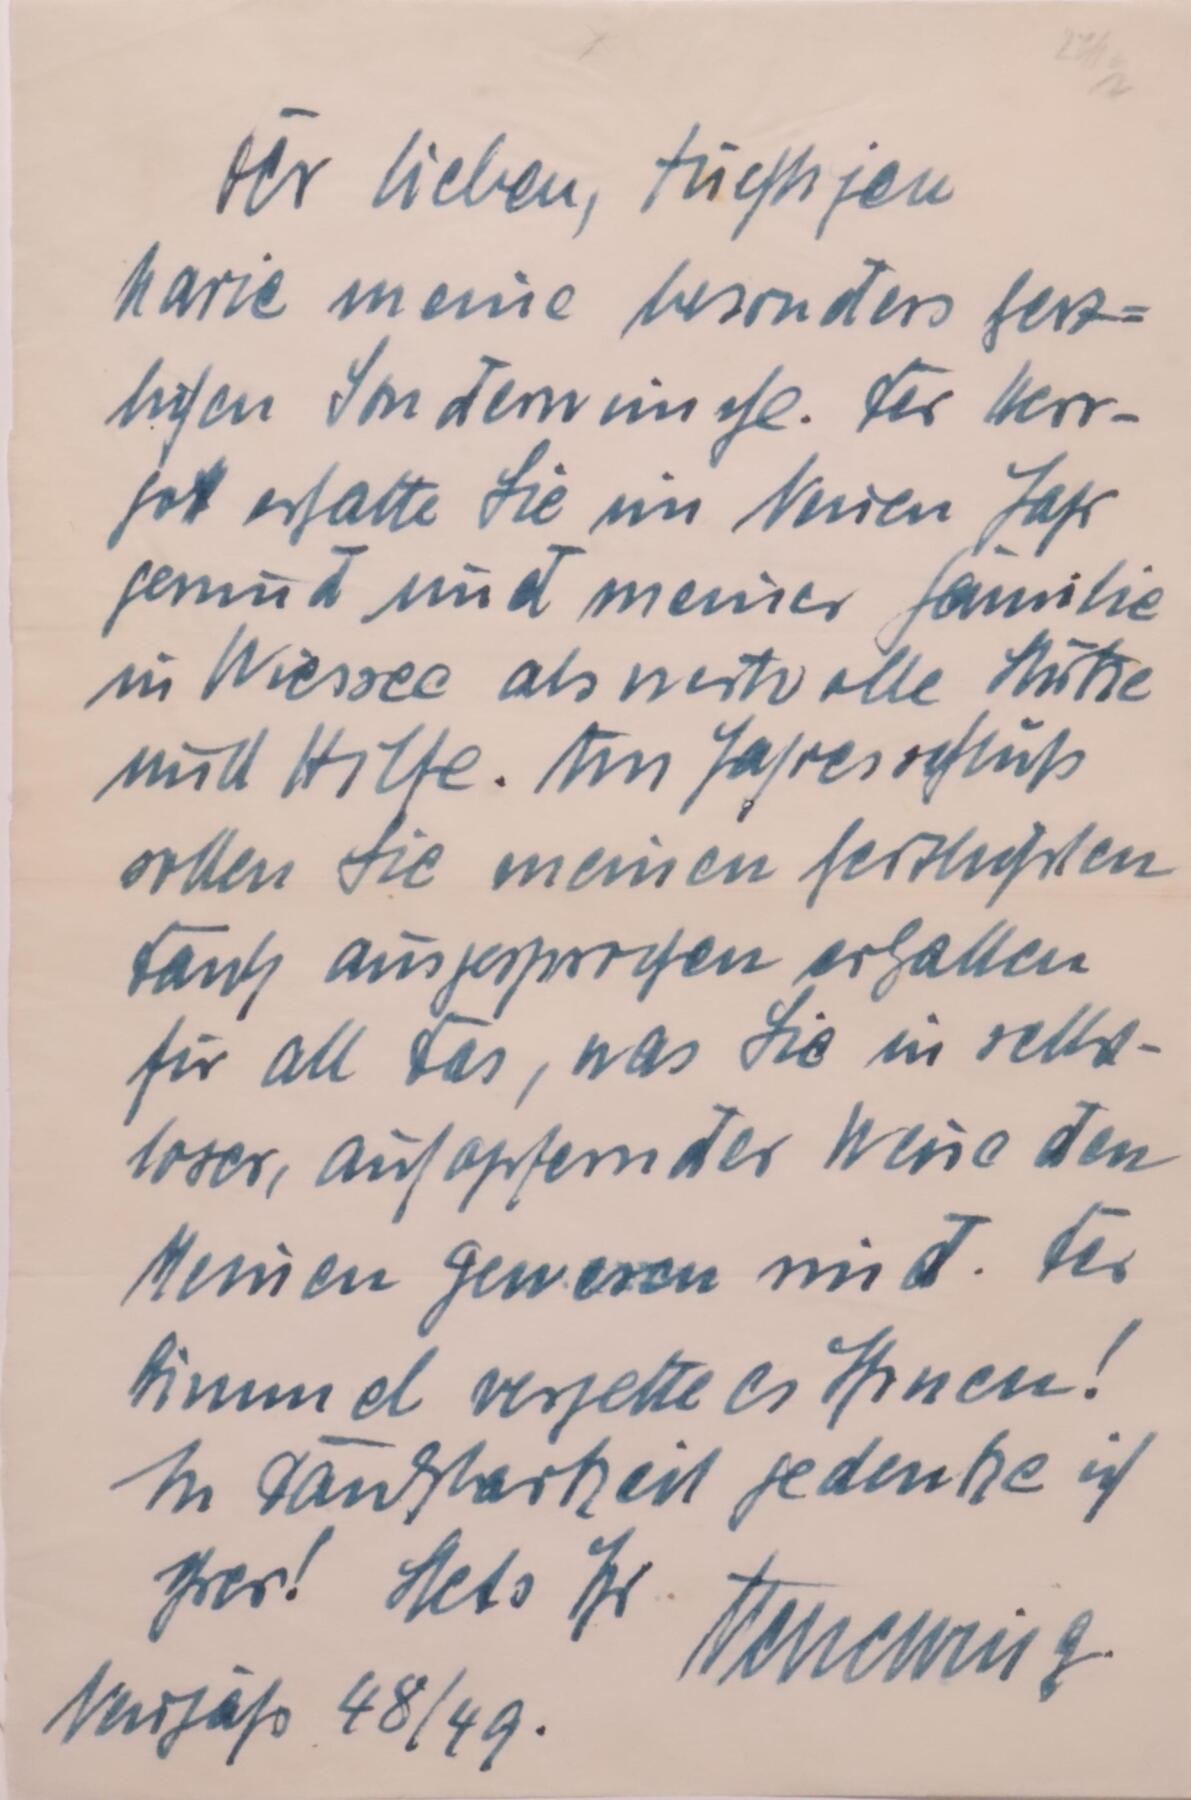 Der lieben, tüchtigen
Marie meine besonders herz=
lichen Sonderwünsche. Der Herr-
got erhalte Sie im Neuen Jahr
gesund und meiner Familie
in Wiessee als wertvolle Stütze
und Hilfe. Am Jahresschluß
sollen Sie meinen herzlichsten
Dank ausgesprochen erhalten
für all das, was Sie in selbst-
loser, aufopfernder Weise den
Meinen gewesen sind. Der
Himmel vergelte es Ihnen!
In Dankbarkeit gedenke ich
Ihrer! Stets Ihr
Neujahr 48/49.